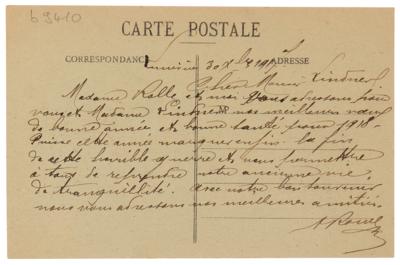 b 9410
CARTE POSTALE
CORRESPONDANCE ADRESSE
30 Xbre 1917
Cher Monsieur Lindner
Madame et moi vous adressons pour
vous et Madame Lindner nos meilleurs vœux
de bonne année, et bonne santé pour 1918
Puisse cette année marquer enfin la fin
de cette horrible guerre et nous permettre
à tous de reprendre notre ancienne vie
de tranquillité. Avec notre bon souvenir
nous vous adressons nos meilleures amitiés.